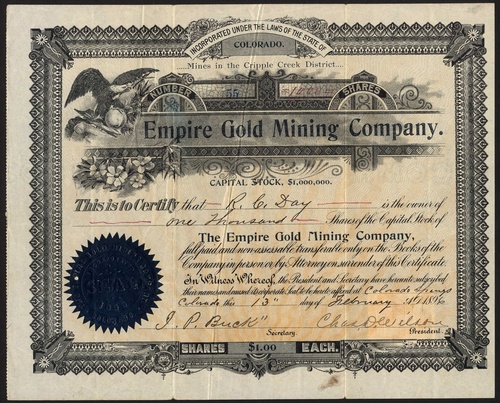 INCORPORATED UNDER THE LAWS OF THE STATE OF
COLORADO.
Mines in the Cripple Creek District
NUMBER SHARES
55
Empire Gold Mining Company.
CAPITAL STOCK, $1,000,000.
This is to Certify that R. C. Day is the owner of
one Thousand Shares of the Capital Stock of
The Empire Gold Mining Company,
full paid and non assessable transferable only on the Books of the
Company in person or by Attorney on surrender of this Certificate
In Witness Whereof, the President and Secretary have hereunto subscribed
their names and caused the Corporate Seal to be hereto affixed at Colorado Springs
Colorado this 13" day of February 1896
J. P. Buck Chas D. Wilson
Secretary. President.
SHARES $1.00 EACH.